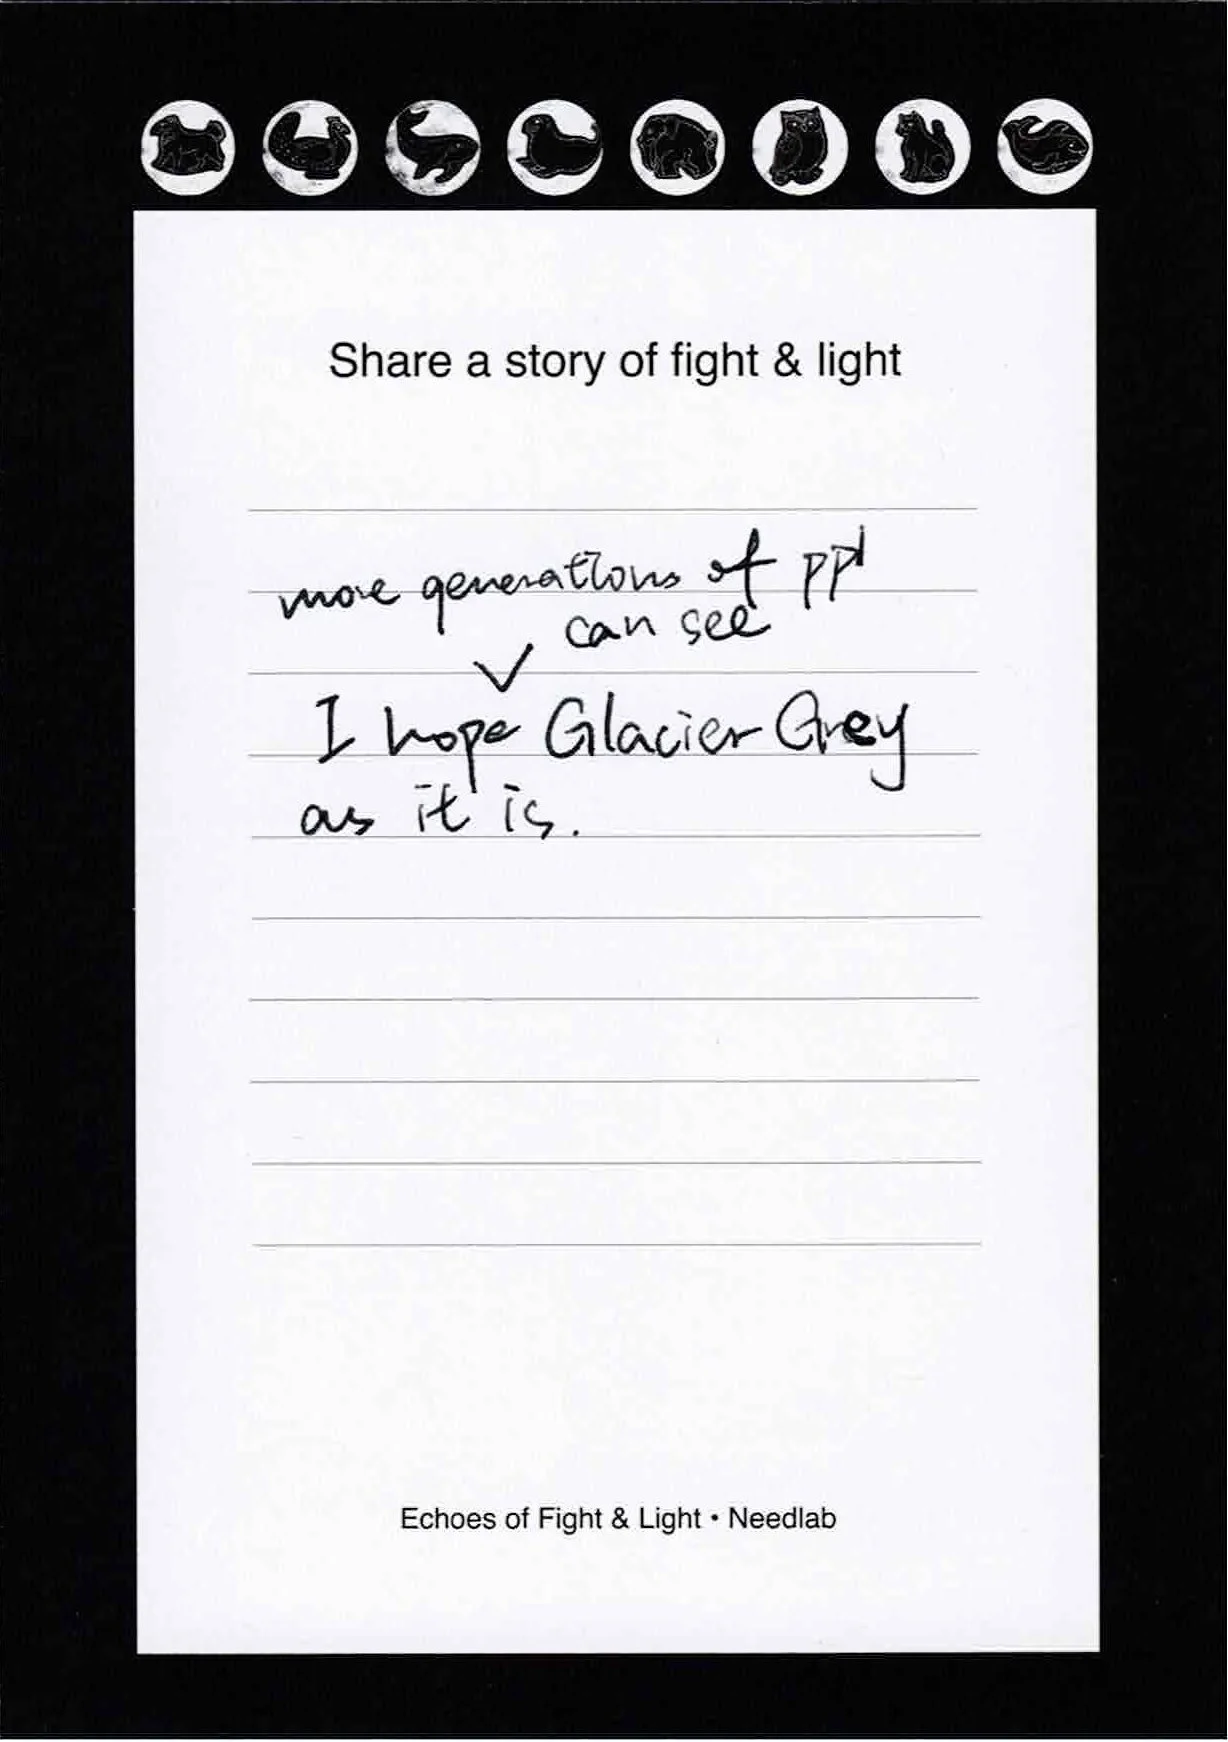 Share a story of fight & light
more generations of ppl
can see
✓
I hope Glacier Grey
as it is.
Echoes of Fight & Light • Needlab